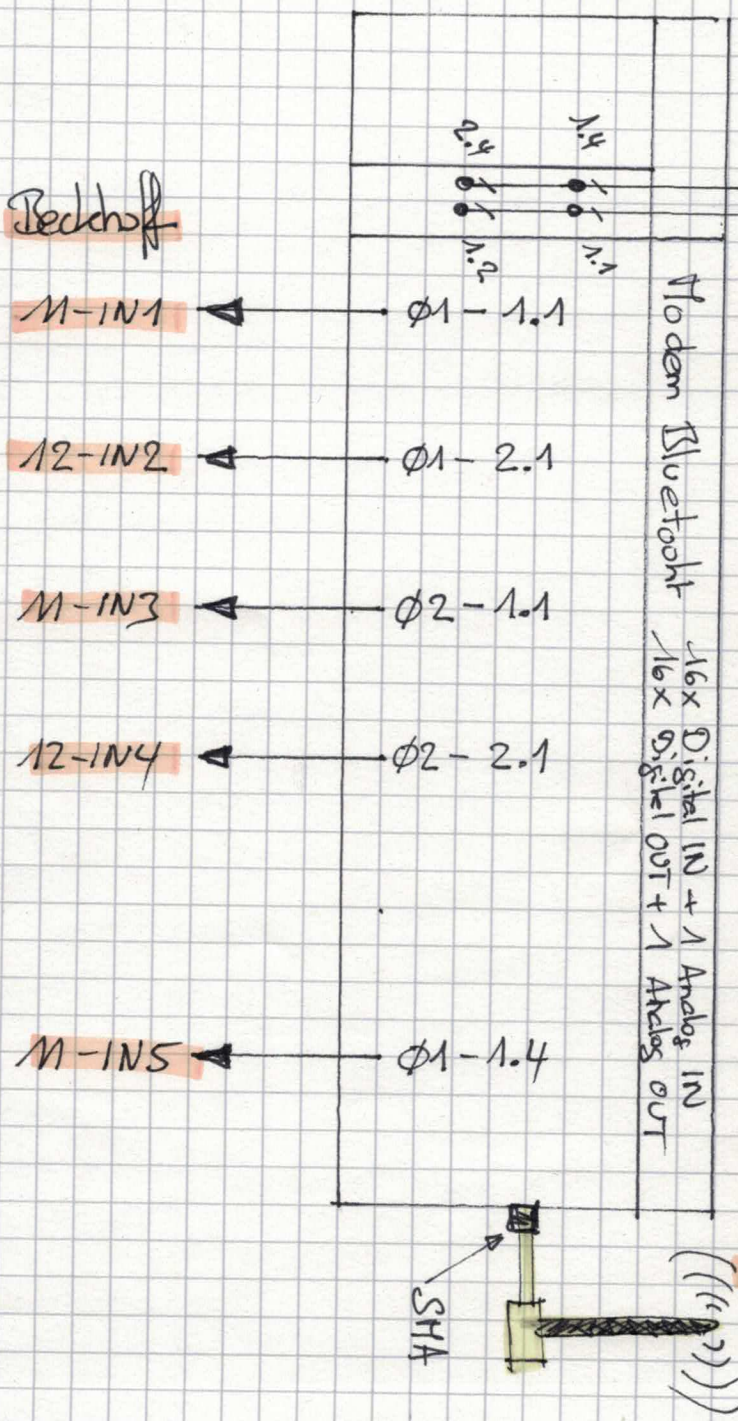 2.4
1.4
1.2
1.1
Beckhoff
11-IN1
Ø1 - 1.1
12-IN2
Ø1 - 2.1
11-IN3
Ø2 - 1.1
12-IN4
Ø2 - 2.1
11-IN5
Ø1 - 1.4
Modem Bluetooht
16x Digital IN + 1 Analog IN
16x Digital OUT + 1 Analog OUT
SMA